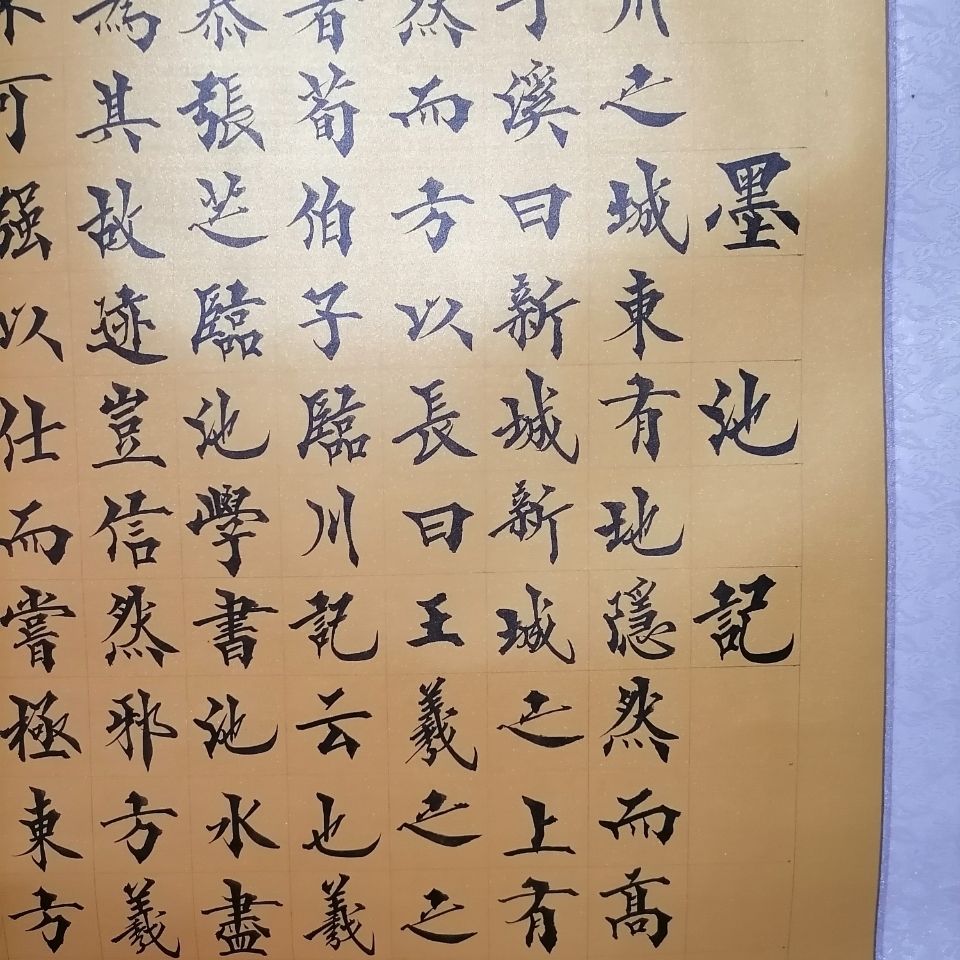 墨池記
川之城東有地隱然而高
于溪曰新城新城之上有
然而方以長曰王羲之之
者荀伯子臨川記云也羲
慕張芝臨池學書池水盡
為其故迹豈信然邪方羲
不可强以仕而嘗極東方